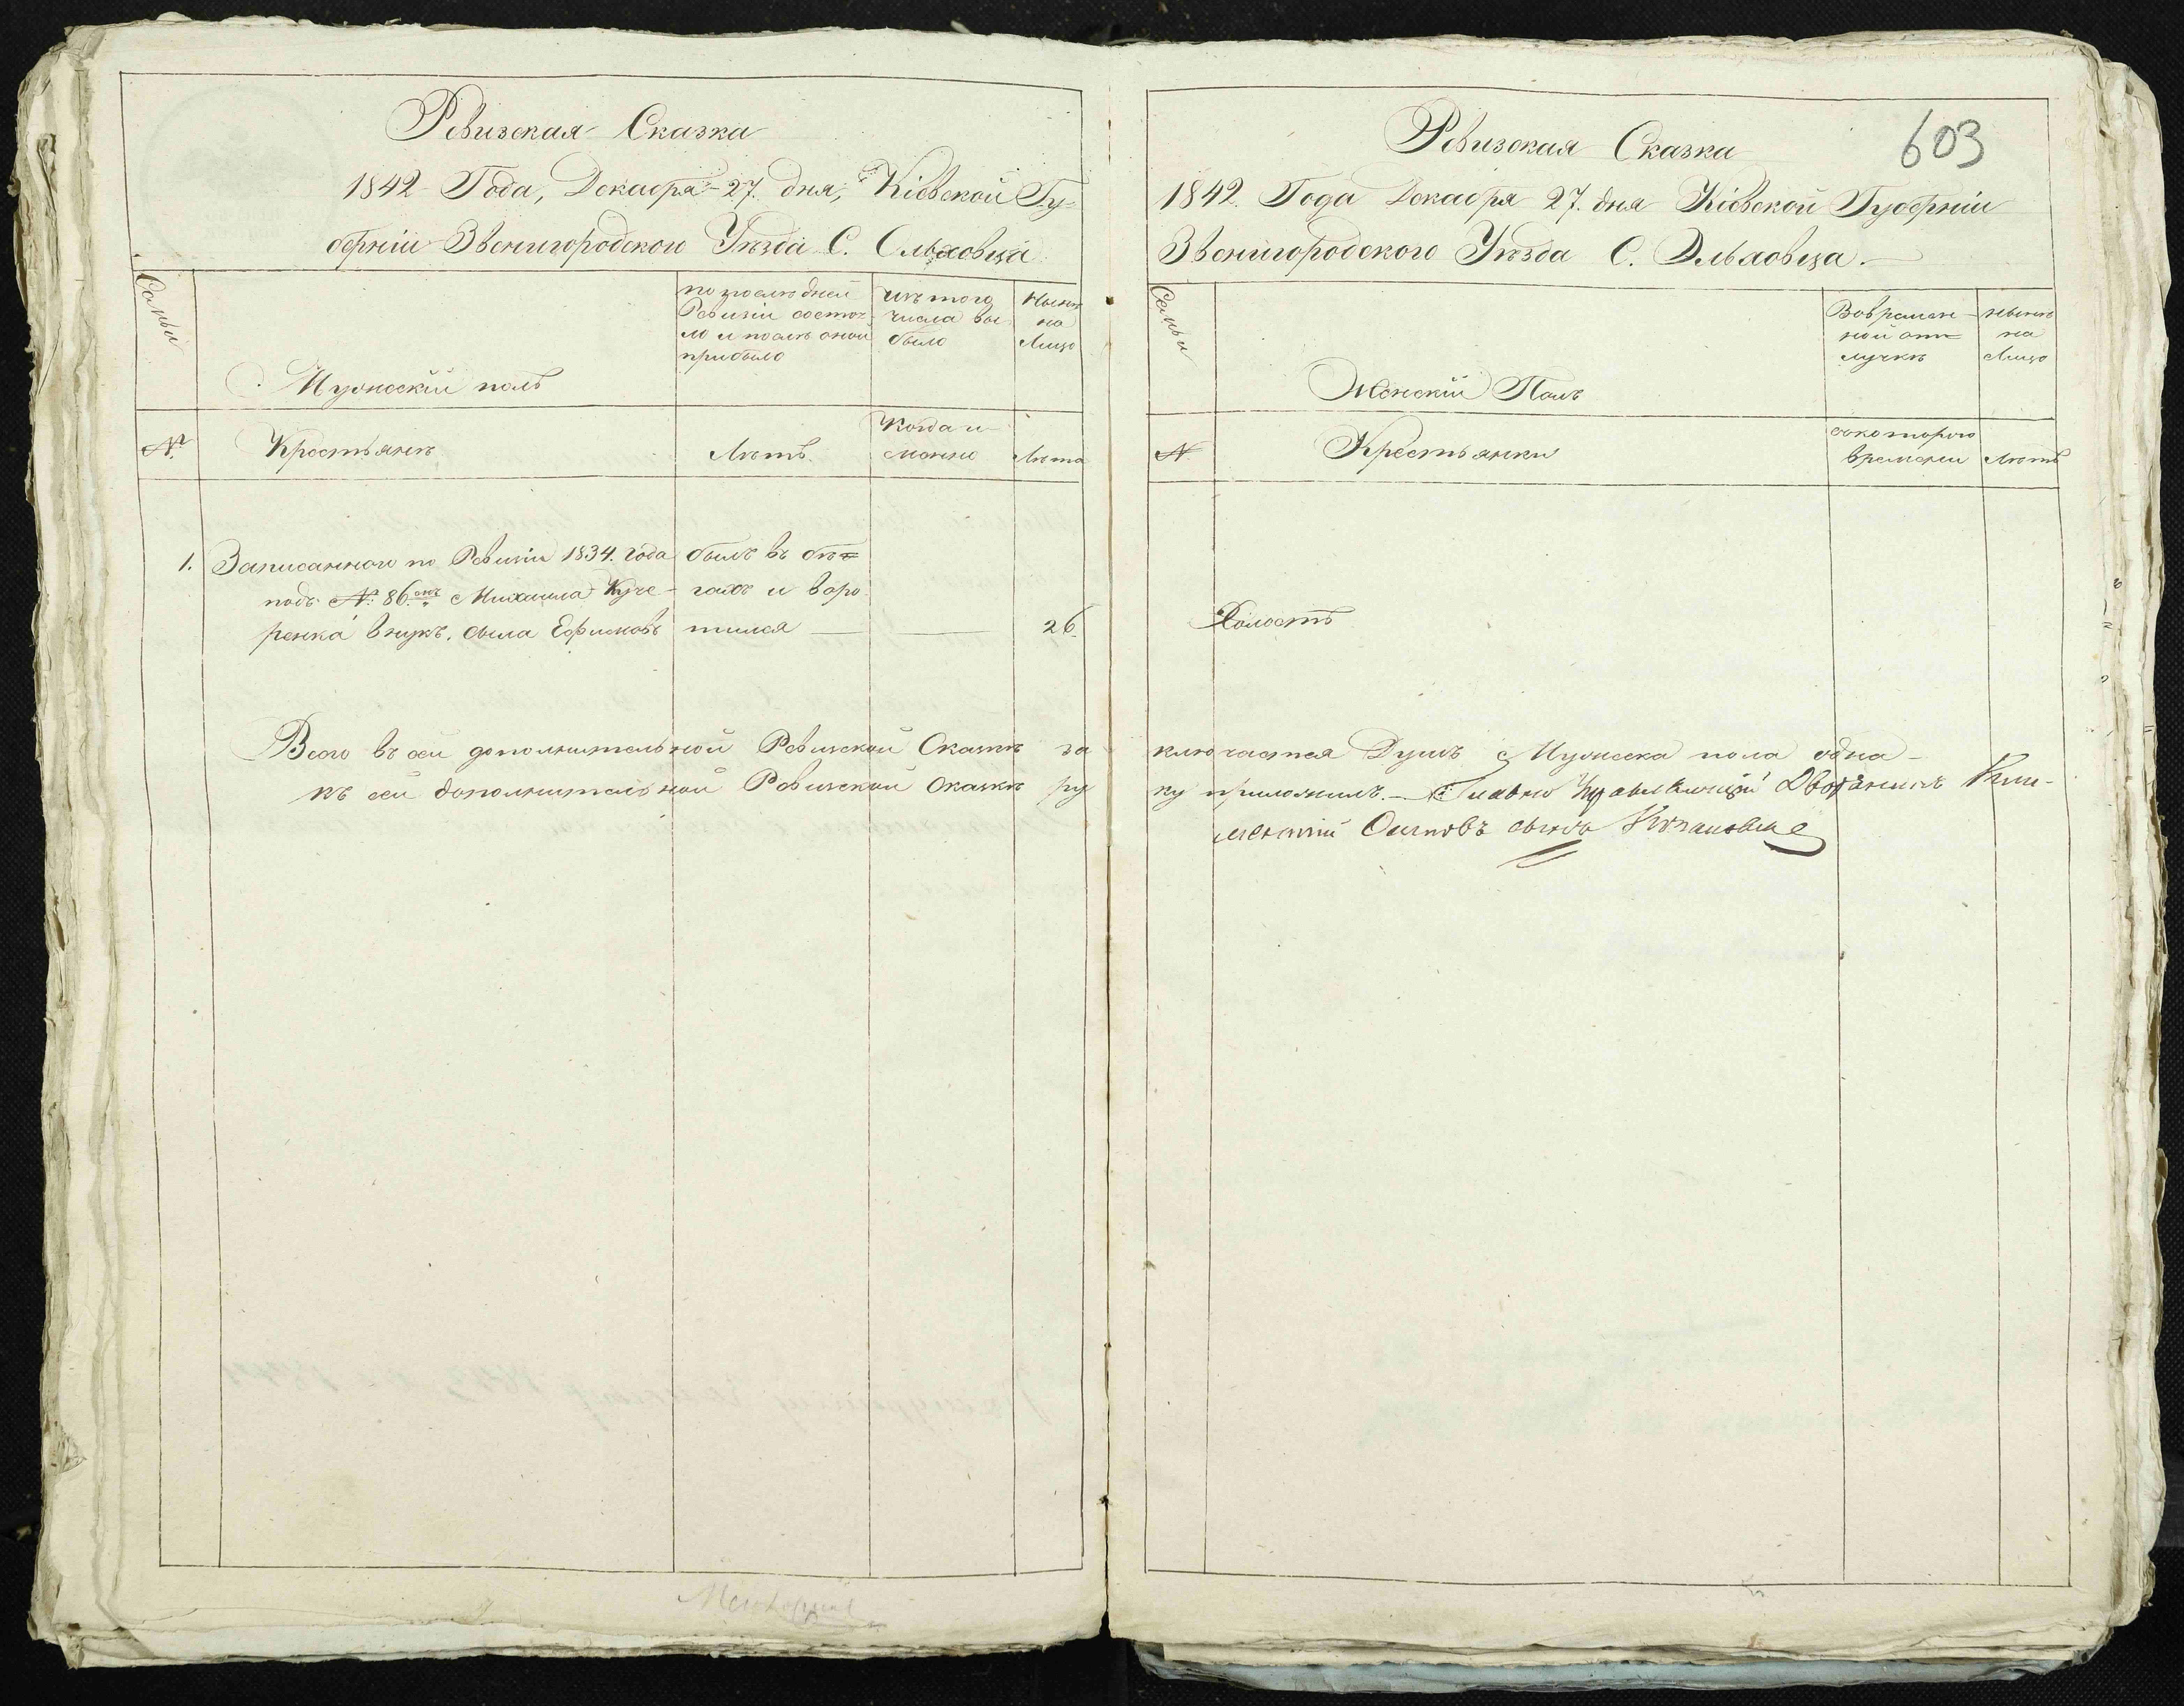 Ревизская Сказка
1842 Года, Декабря 27. дня, Кіевской Гу=
берніи Звенигородского Уѣзда С. Ольховца
Семьи
Мужескій полъ
по послѣдней
Ревизіи состоя=
ло и послѣ оной
прибыло
изъ того
числа вы
было
Нынѣ
на
Лицо
№
Крестьянъ
Лѣтъ.
Когда и
Лѣта
1. Записанного по Ревизіи 1834. года былъ въ бѣ=
подъ № 86. Михаила Куче- гахъ и воро
ренка внукъ, Ефимовъ тился — — 26.
Всего въ сей дополнительной Ревизской Сказкѣ за
къ сей дополнительной Ревизской Сказкѣ ру
603
Ревизская Сказка
1842. Года Декабря 27. дня Кіевской Губерніи
Звенигородского Уѣзда С. Ольховца.
Семьи
Женскій Полъ
Вовремен-
ной от=
лучкѣ
нынѣ
на
Лицо
№
Крестьянки
сокоторого
времени
Лѣтъ
Холостъ
ключается Душъ Мужеска пола одна-
ку приложилъ. — Главно Управляющій Дворянинъ Кли-
ментій Осиповъ сынъ